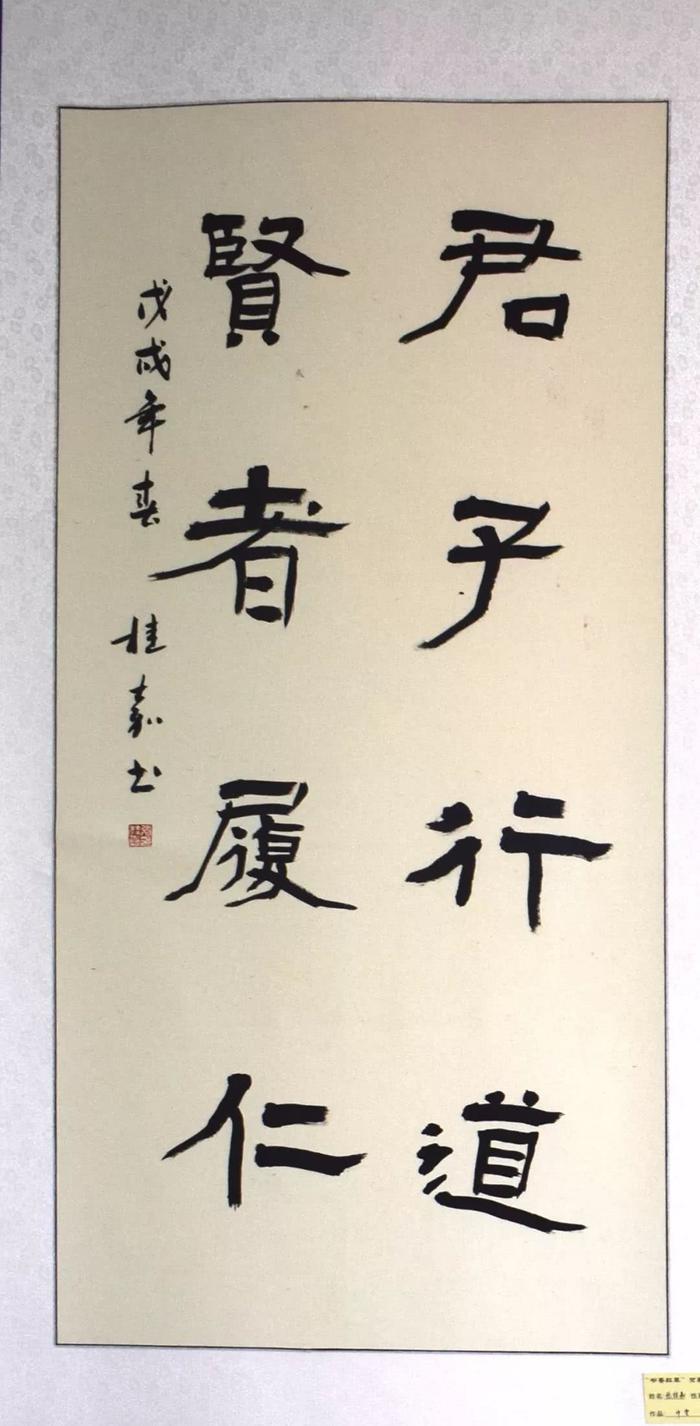 君子行道
賢者履仁
戊戌年春 桂嘉书